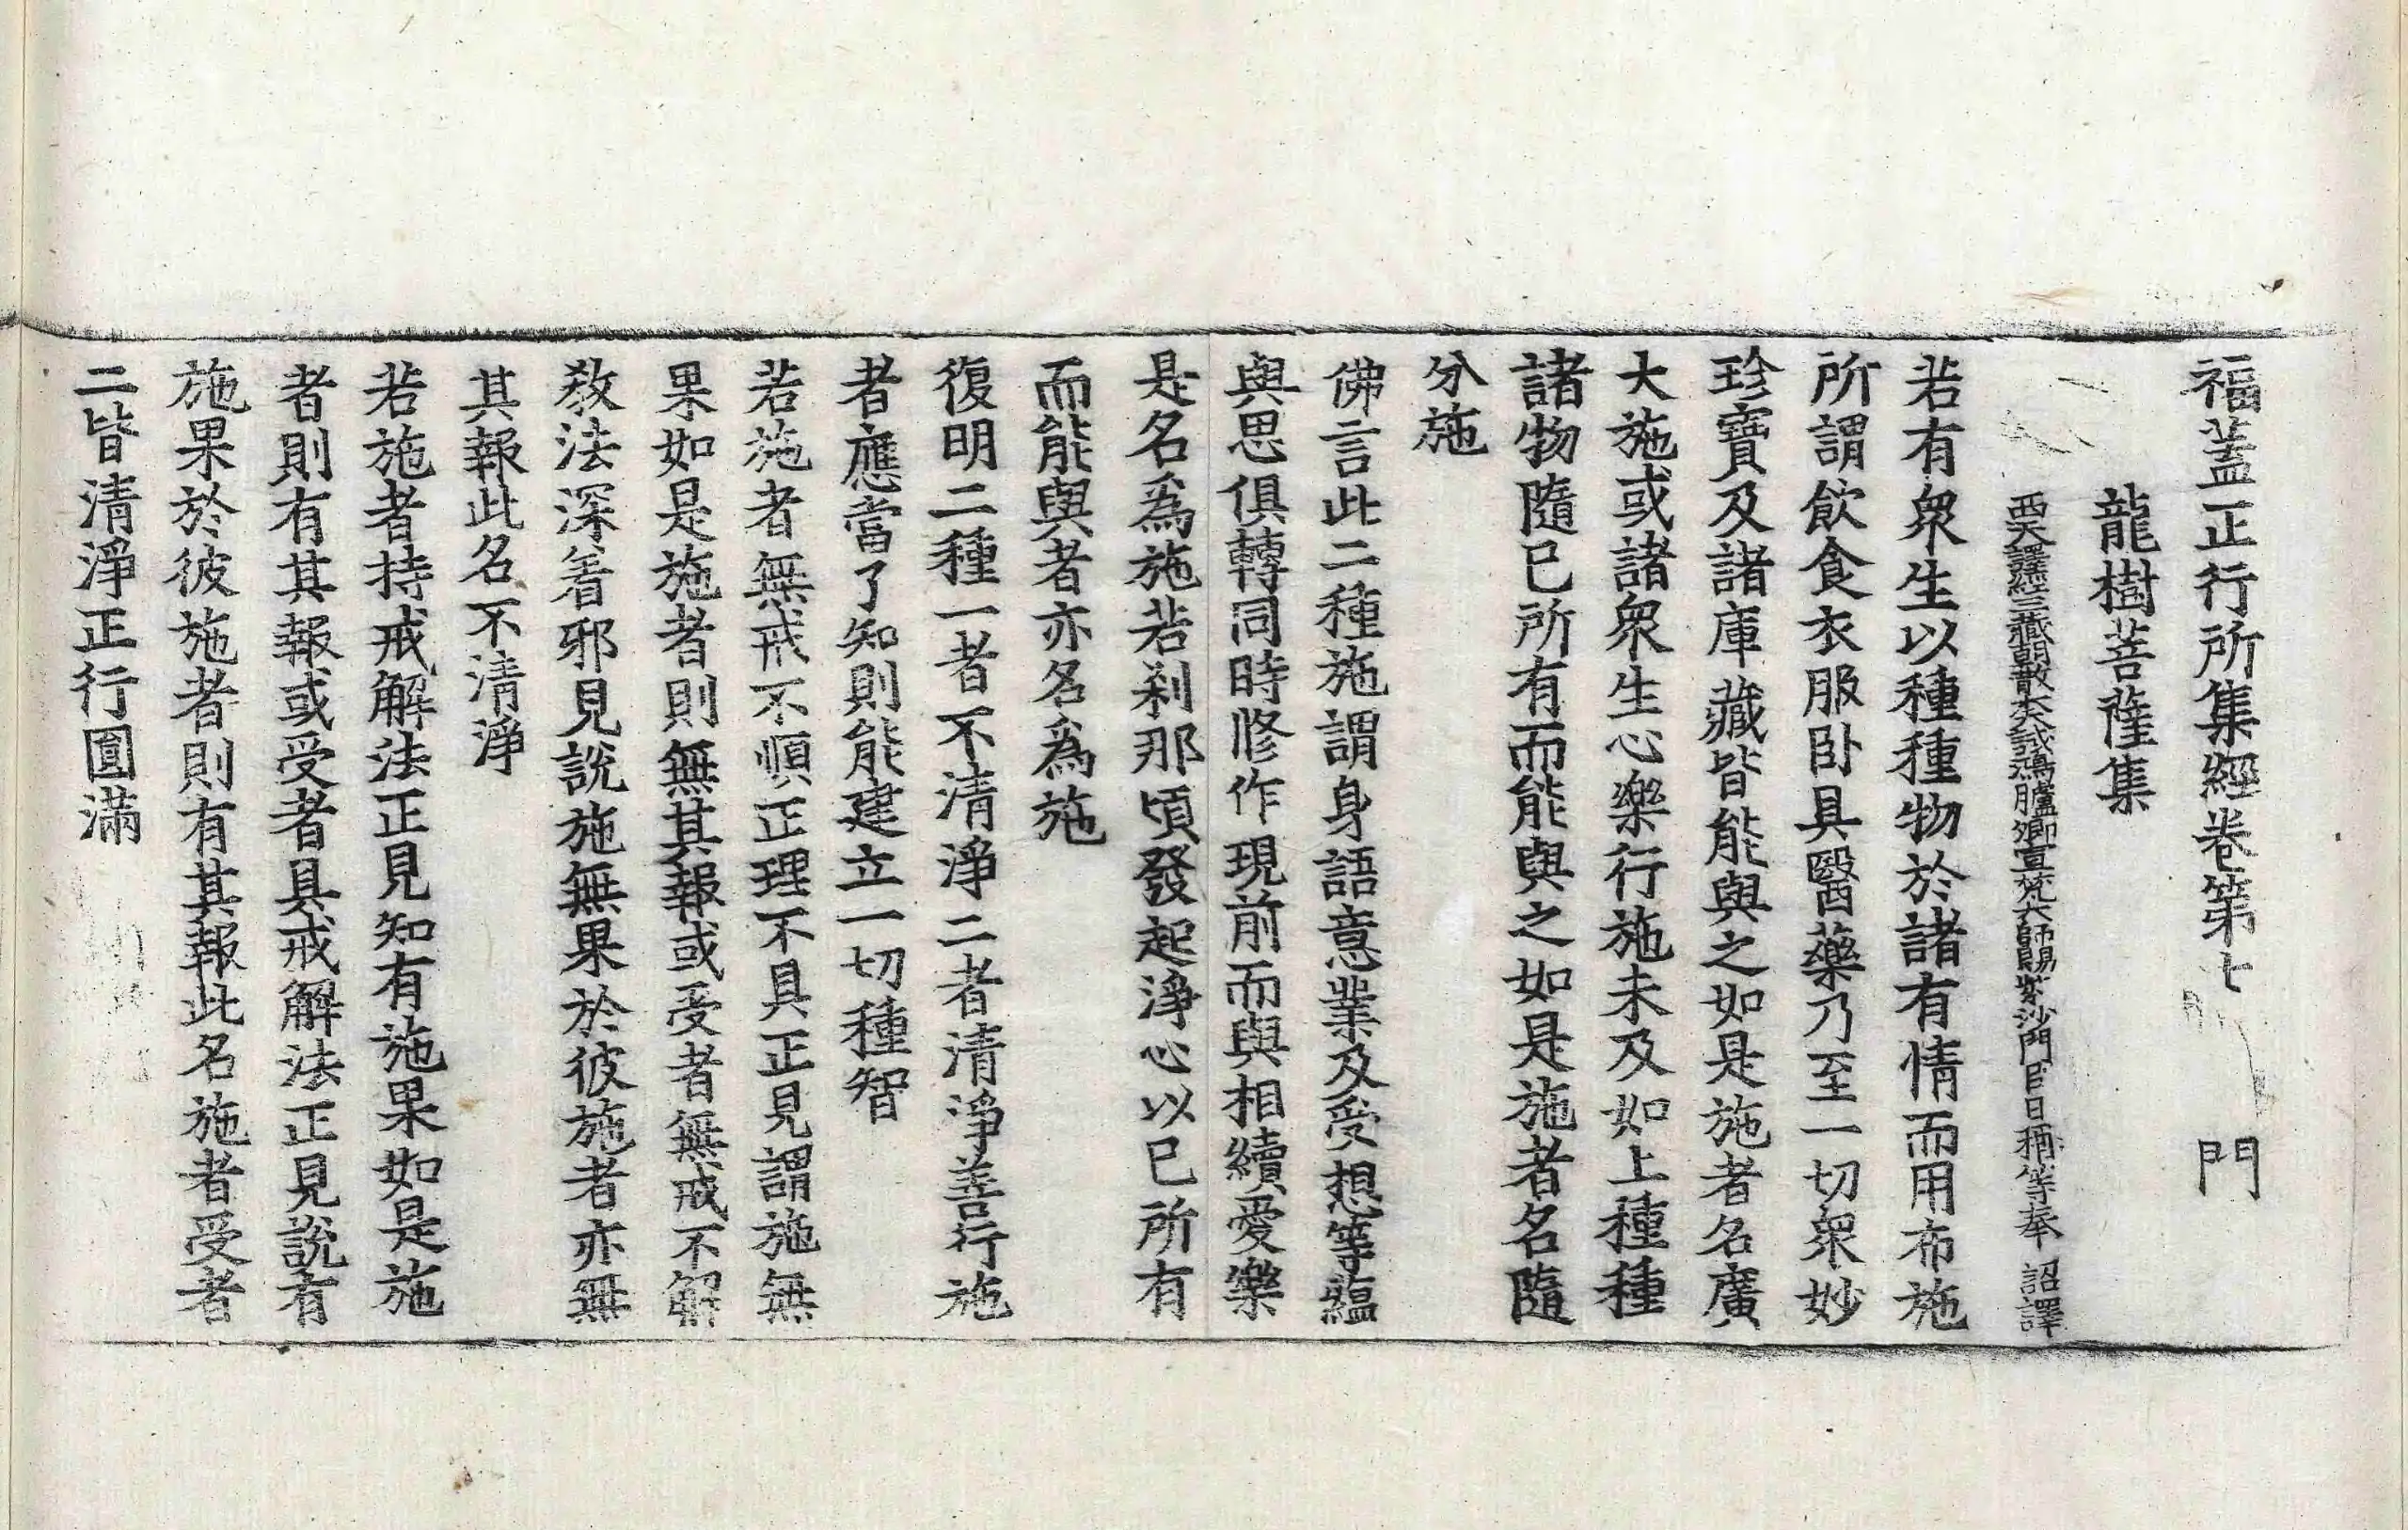 福蓋正行所集經卷第七 門
龍樹菩薩集
西天譯經三藏朝散大夫試鴻臚卿宣梵大師賜紫沙門臣日稱等奉 詔譯
若有衆生以種種物於諸有情而用布施
所謂飲食衣服卧具醫藥乃至一切衆妙
珍寶及諸庫藏皆能與之如是施者名廣
大施或諸衆生心樂行施未及如上種種
諸物隨已所有而能與之如是施者名隨
分施
佛言此二種施謂身語意業及受想等蘊
與思俱轉同時修作現前而與相續愛樂
是名爲施若刹那頃發起淨心以已所有
而能與者亦名爲施
復明二種一者不清淨二者清淨善行施
者應當了知則能建立一切種智
若施者無戒不順正理不具正見謂施無
果如是施者則無其報或受者無戒不解
教法深着邪見說施無果於彼施者亦無
其報此名不清淨
若施者持戒解法正見知有施果如是施
者則有其報或受者具戒解法正見說有
施果於彼施者則有其報此名施者受者
二皆清淨正行圓滿